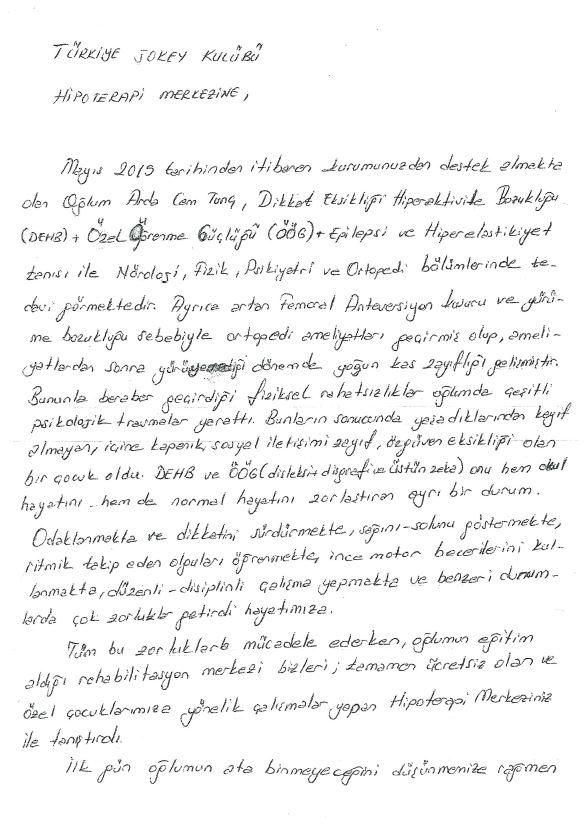 TÜRKİYE JOKEY KULÜBÜ
HİPOTERAPİ MERKEZİNE,
Mayıs 2015 tarihinden itibaren kurumunuzdan destek almakta
olan Oğlum Arda Cem Tunç, Dikkat Eksikliği Hiperaktivite Bozukluğu
(DEHB) + Özel Öğrenme Güçlüğü (ÖÖG) + Epilepsi ve Hiperelastikiyet
tanısı ile Nöroloji, Fizik, Psikiyatri ve Ortopedi bölümlerinde te-
davi görmektedir. Ayrıca artan Femoral Anteversiyon kusuru ve yürü-
me bozukluğu sebebiyle ortopedi ameliyatları geçirmiş olup, ameli-
yatlardan sonra yürüyemediği dönemde yoğun kas zayıflığı gelişmiştir.
Bununla beraber geçirdiği fiziksel rahatsızlıklar oğlumda çeşitli
psikolojik travmalar yarattı. Bunların sonucunda yaşadıklarından keyif
almayan, içine kapanık, sosyal iletişimi zayıf, özgüven eksikliği olan
bir çocuk oldu. DEHB ve ÖÖG (disleksi+disgrafi ve üstün zeka) onu hem okul
hayatını hem de normal hayatını zorlaştıran ayrı bir durum.
Odaklanmakta ve dikkatini sürdürmekte, sağını-solunu göstermekte,
ritmik takip eden olguları öğrenmekte, ince motor becerilerini kul-
lanmakta, düzenli-disiplinli çalışma yapmakta ve benzeri durum-
larda çok zorluklar getirdi hayatımıza.
Tüm bu zorluklarla mücadele ederken, oğlumun eğitim
aldığı rehabilitasyon merkezi bizleri; tamamen ücretsiz olan ve
özel çocuklarımıza yönelik çalışmalar yapan Hipoterapi Merkeziniz
ile tanıştırdı.
İlk gün oğlumun ata binmeyeceğini düşünmemize rağmen